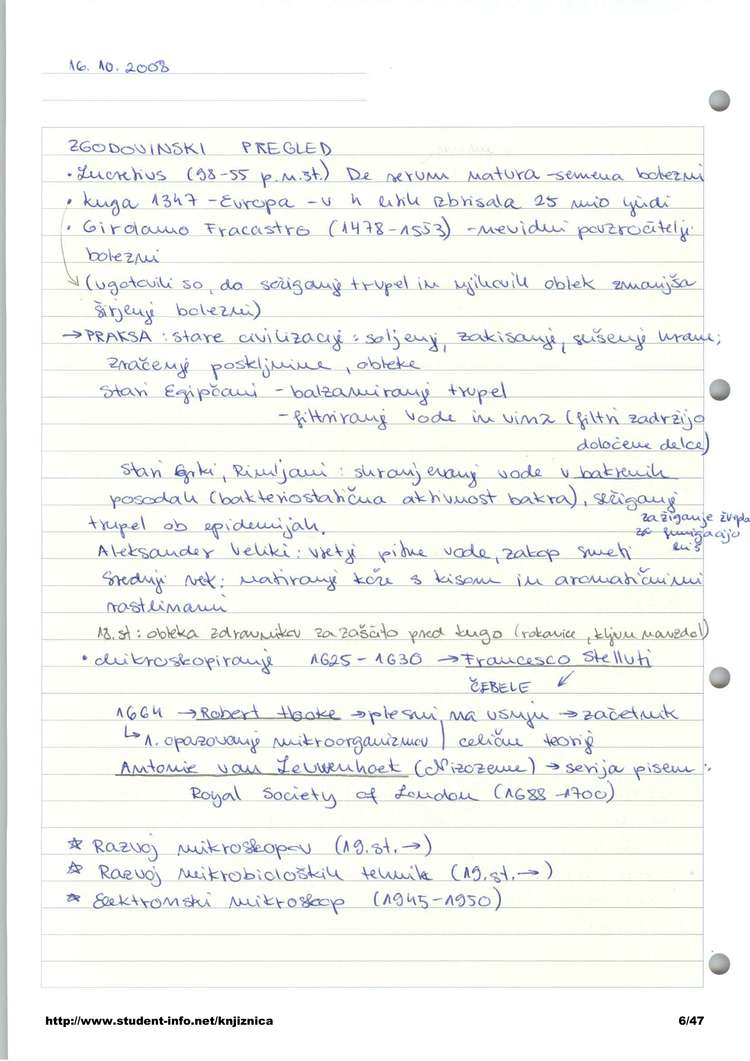 16. 10. 2008
ZGODOVINSKI PREGLED
• Lucretius (98-55 p.n.št.) De rerum natura - semena bolezni
• kuga 1347 - Evropa - v 4 letih izbrisala 25 mio ljudi
• Girolamo Fracastro (1478-1553) - nevidni povzročitelji
bolezni
(ugotovili so, da sežiganje trupel in njihovih oblek zmanjša
širjenje bolezni)
→ PRAKSA : stare civilizacije : soljenje, zakisanje, sušenje hrane;
zračenje posteljnine, obleke
Stari Egipčani - balzamiranje trupel
- filtriranje vode in vina (filtri zadržijo
določene delce)
Stari Grki, Rimljani : shranjevanje vode v bakrenih
posodah (bakteriostatična aktivnost bakra), sežiganje
zažiganje žvepla
trupel ob epidemijah.
za fumigacijo
hiš
Aleksander Veliki : vretje pitne vode, zakop smeti
Srednji vek : natiranje kože s kisom in aromatičnimi
rastlinami
18. st : obleka zdravnikov za zaščito pred kugo (rokavice, kljun navzdol)
• mikroskopiranje 1625 - 1630 → Francesco Stelluti
ČEBELE
1664 → Robert Hooke → plesni, na usnju → začetnik
↳ 1. opazovanje mikroorganizmov celične teorije
Antonie van Leuwenhoek (Nizozemec) → serija pisem :
Royal Society of London (1688 - 1700)
☆ Razvoj mikroskopov (19. st. →)
☆ Razvoj mikrobioloških tehnik (19. st. →)
☆ Elektronski mikroskop (1945-1950)
http://www.student-info.net/knjiznica 6/47